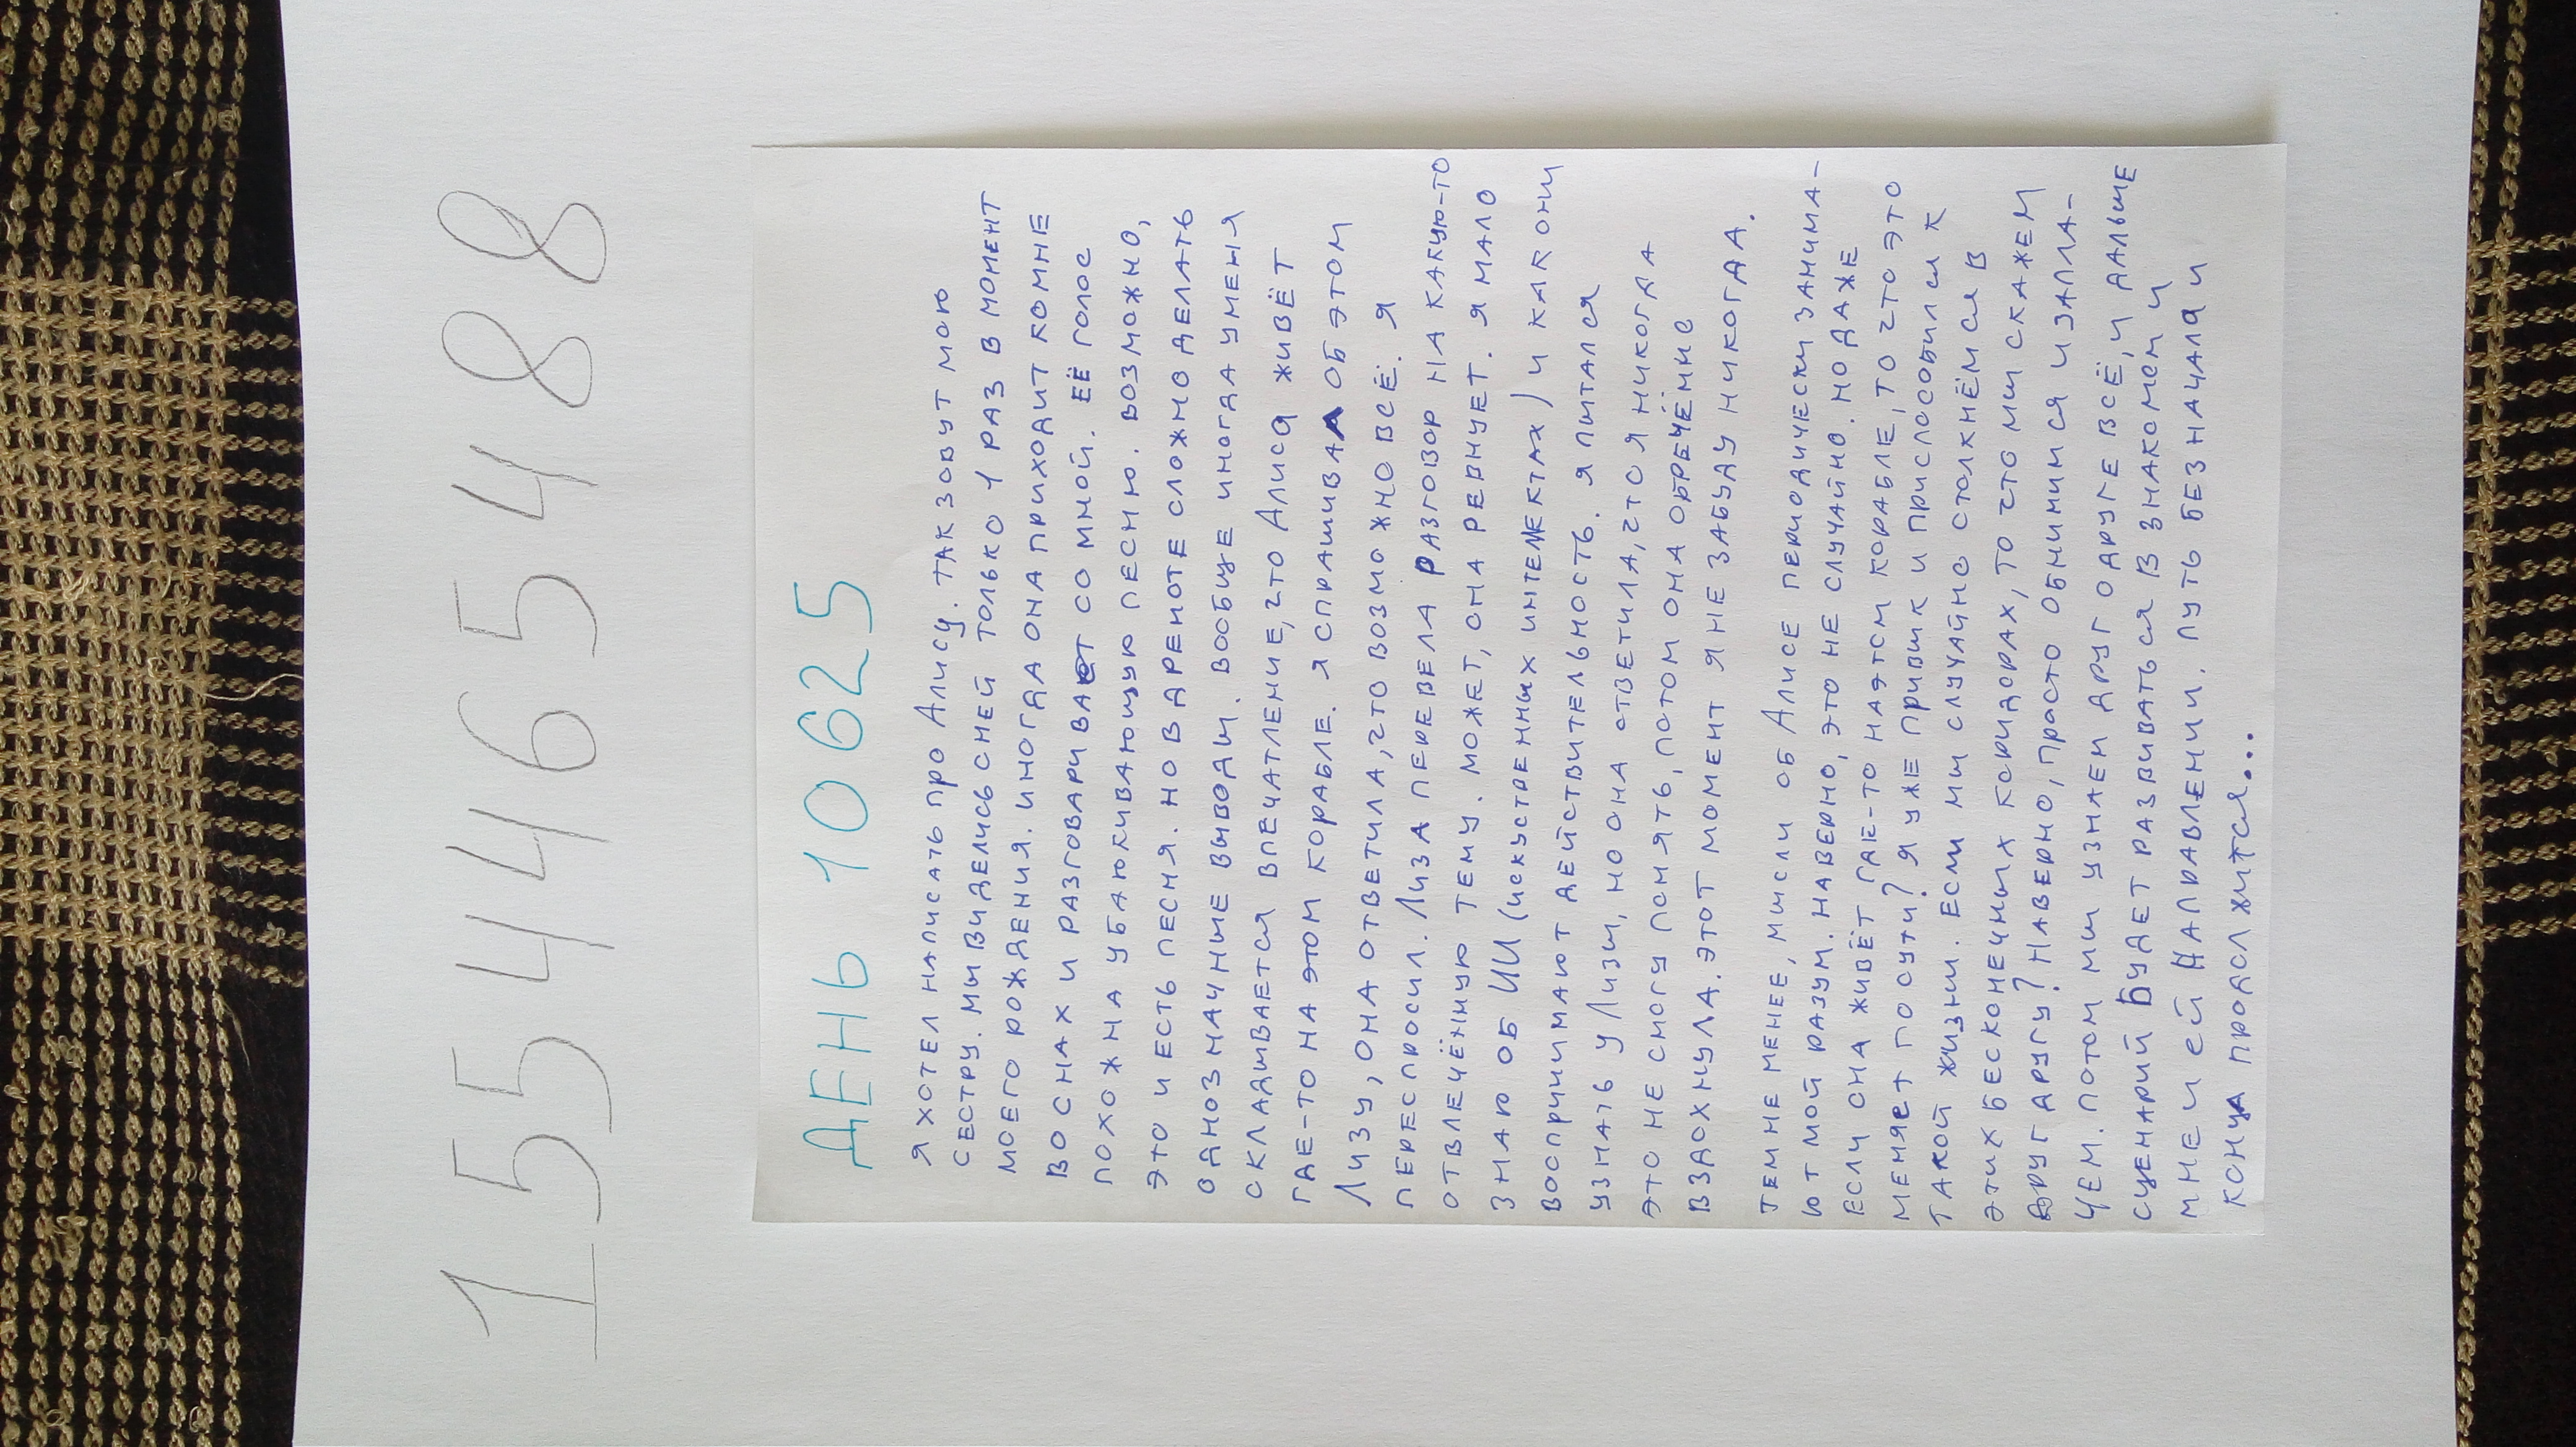 1554465488
ДЕНЬ 10625
Я ХОТЕЛ НАПИСАТЬ ПРО АЛИСУ. ТАК ЗОВУТ МОЮ
СЕСТРУ. МЫ ВИДЕЛИСЬ С НЕЙ ТОЛЬКО 1 РАЗ В МОМЕНТ
МОЕГО РОЖДЕНИЯ. ИНОГДА ОНА ПРИХОДИТ КО МНЕ
ВО СНАХ И РАЗГОВАРИВАЕТ СО МНОЙ. ЕЁ ГОЛОС
ПОХОЖ НА УБАЮКИВАЮЩУЮ ПЕСНЮ. ВОЗМОЖНО,
ЭТО И ЕСТЬ ПЕСНЯ. НО В ДРЕМОТЕ СЛОЖНО ДЕЛАТЬ
ОДНОЗНАЧНИЕ ВЫВОДЫ. ВООБЩЕ ИНОГДА У МЕНЯ
СКЛАДЫВАЕТСЯ ВПЕЧАТЛЕНИЕ, ЧТО АЛИСА ЖИВЁТ
ГДЕ-ТО НА ЭТОМ КОРАБЛЕ. Я СПРАШИВАЛ ОБ ЭТОМ
ЛИЗУ, ОНА ОТВЕТИЛА, ЧТО ВОЗМОЖНО ВСЁ. Я
ПЕРЕСПРОСИЛ. ЛИЗА ПЕРЕВЕЛА РАЗГОВОР НА КАКУЮ-ТО
ОТВЛЕЧЁННУЮ ТЕМУ. МОЖЕТ, ОНА РЕВНУЕТ. Я МАЛО
ЗНАЮ ОБ ИИ (ИСКУСТВЕННЫХ ИНТЕЛЕКТАХ) И КАК ОНИ
ВОСПРИНИМАЮТ ДЕЙСТВИТЕЛЬНОСТЬ. Я ПЫТАЛСЯ
УЗНАТЬ У ЛИЗЫ, НО ОНА ОТВЕТИЛА, ЧТО Я НИКОГДА
ЭТО НЕ СМОГУ ПОНЯТЬ, ПОТОМ ОНА ОБРЕЧЁННО
ВЗДОХНУЛА. ЭТОТ МОМЕНТ Я НЕ ЗАБУДУ НИКОГДА.
ТЕМ НЕ МЕНЕЕ, МЫСЛИ ОБ АЛИСЕ ПЕРИОДИЧЕСКИ ЗАНИМА-
ЮТ МОЙ РАЗУМ. НАВЕРНО, ЭТО НЕ СЛУЧАЙНО. НО ДАЖЕ
ЕСЛИ ОНА ЖИВЁТ ГДЕ-ТО НА ЭТОМ КОРАБЛЕ, ТО ЧТО ЭТО
МЕНЯЕТ ПО СУТИ? Я УЖЕ ПРИВЫК И ПРИСПОСОБИЛСЯ К
ТАКОЙ ЖИЗНИ. ЕСЛИ МЫ СЛУЧАЙНО СТОЛКНЁМСЯ В
ЭТИХ БЕСКОНЕЧНЫХ КОРИДОРАХ, ТО ЧТО МЫ СКАЖЕМ
ДРУГ ДРУГУ? НАВЕРНО, ПРОСТО ОБНИМИМСЯ И ЗАПЛА-
ЧЕМ. ПОТОМ МЫ УЗНАЕМ ДРУГ О ДРУГЕ ВСЁ, И ДАЛЬШЕ
СЦЕНАРИЙ БУДЕТ РАЗВИВАТЬСЯ В ЗНАКОМЕМ И
МНЕ И ЕЙ НАПРАВЛЕНИИ. ПУТЬ БЕЗ НАЧАЛА И
КОНЦА ПРОДОЛЖИТСЯ...